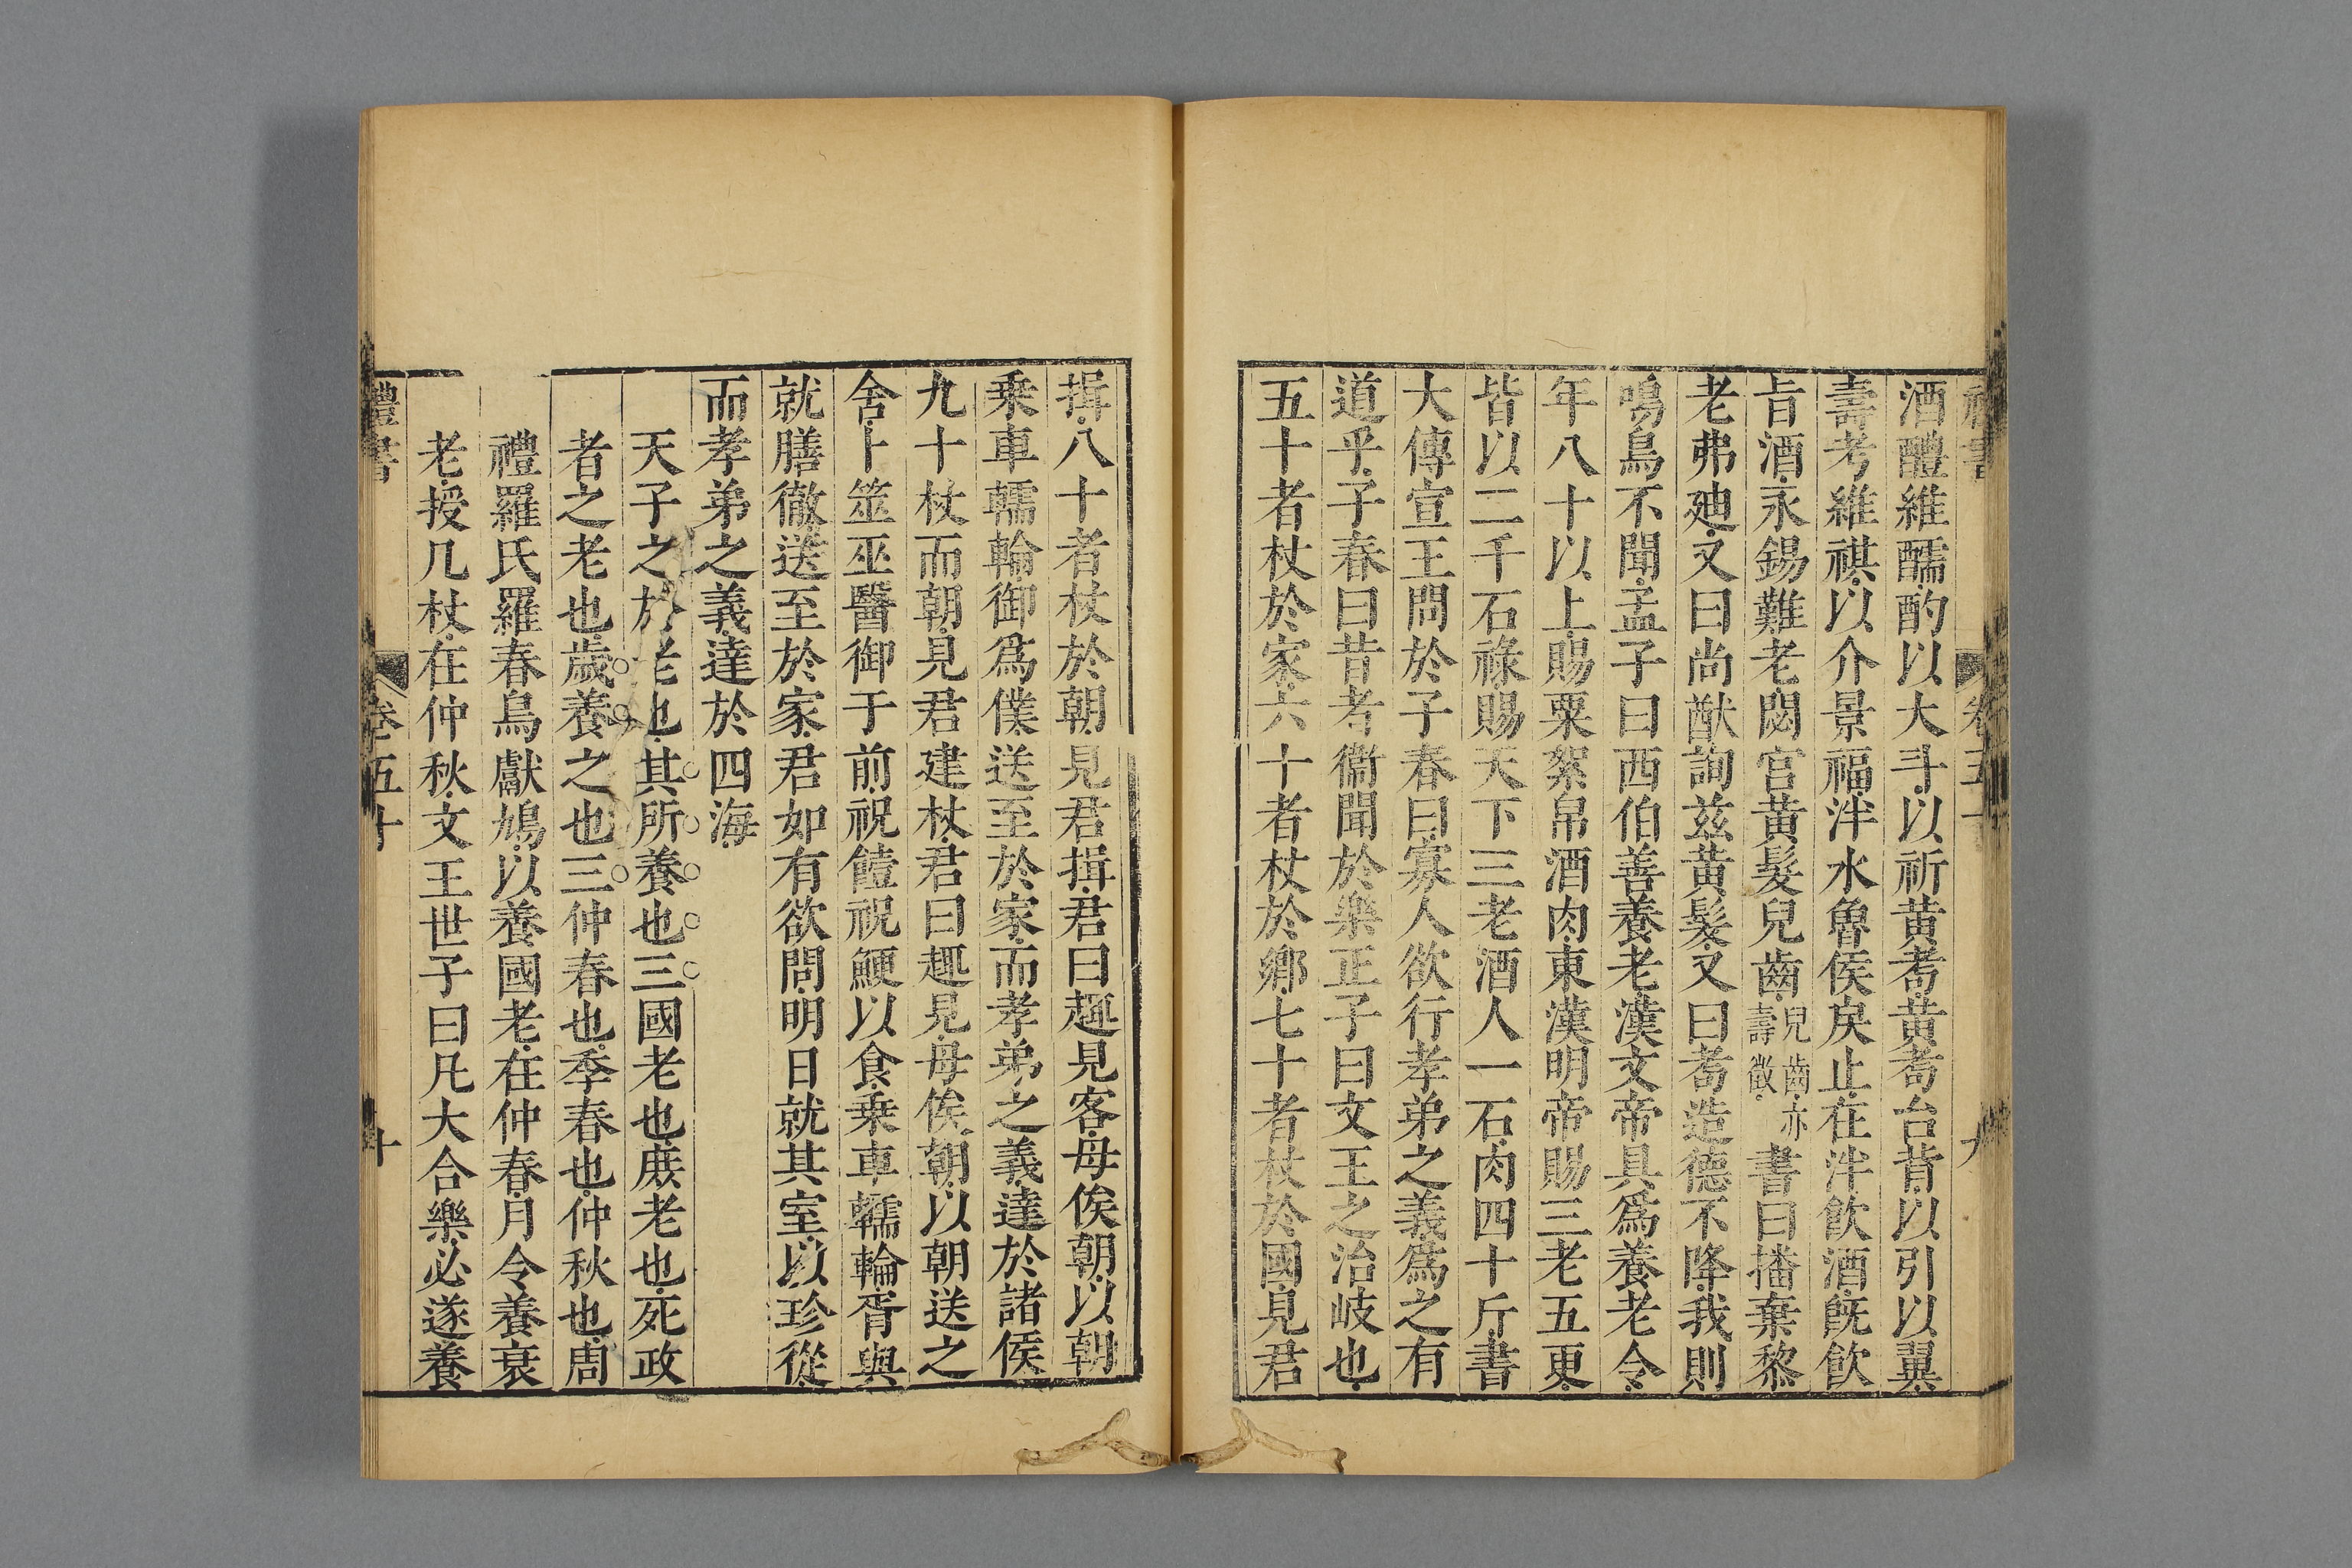 酒醴維醹酌以大斗以祈黃耇黃耇台背以引以翼
壽考維祺以介景福泮水魯侯戾止在泮飲酒旣飲
旨酒永錫難老閟宮黃髮兒齒兒齒亦壽徵書曰播棄黎
老弗廸又曰尚猷詢兹黃髮又曰耇造德不降我則
鳴鳥不聞孟子曰西伯善養老漢文帝具爲養老令
年八十以上賜粟絮帛酒肉東漢明帝賜三老五更
皆以二千石祿賜天下三老酒人一石肉四十斤書
大傳宣王問於子春曰寡人欲行孝弟之義爲之有
道乎子春曰昔者衞聞於樂正子曰文王之治岐也
五十者杖於家六十者杖於鄉七十者杖於國見君
揖八十者杖於朝見君揖君曰趣見客毋俟朝以朝
乘車輲輪御爲僕送至於家而孝弟之義達於諸侯
九十杖而朝見君建杖君曰趣見毋俟朝以朝送之
舍卜筮巫醫御于前祝饐祝鯁以食乗車輲輪胥與
就膳徹送至於家君如有欲問明日就其室以珍從
而孝弟之義達於四海
天子之於老也其所養也三國老也庶老也死政
者之老也歲養之也三仲春也季春也仲秋也周
禮羅氏羅春鳥獻鳩以養國老在仲春月令養衰
老授几杖在仲秋文王世子曰凡大合樂必遂養
禮書 卷五十 十